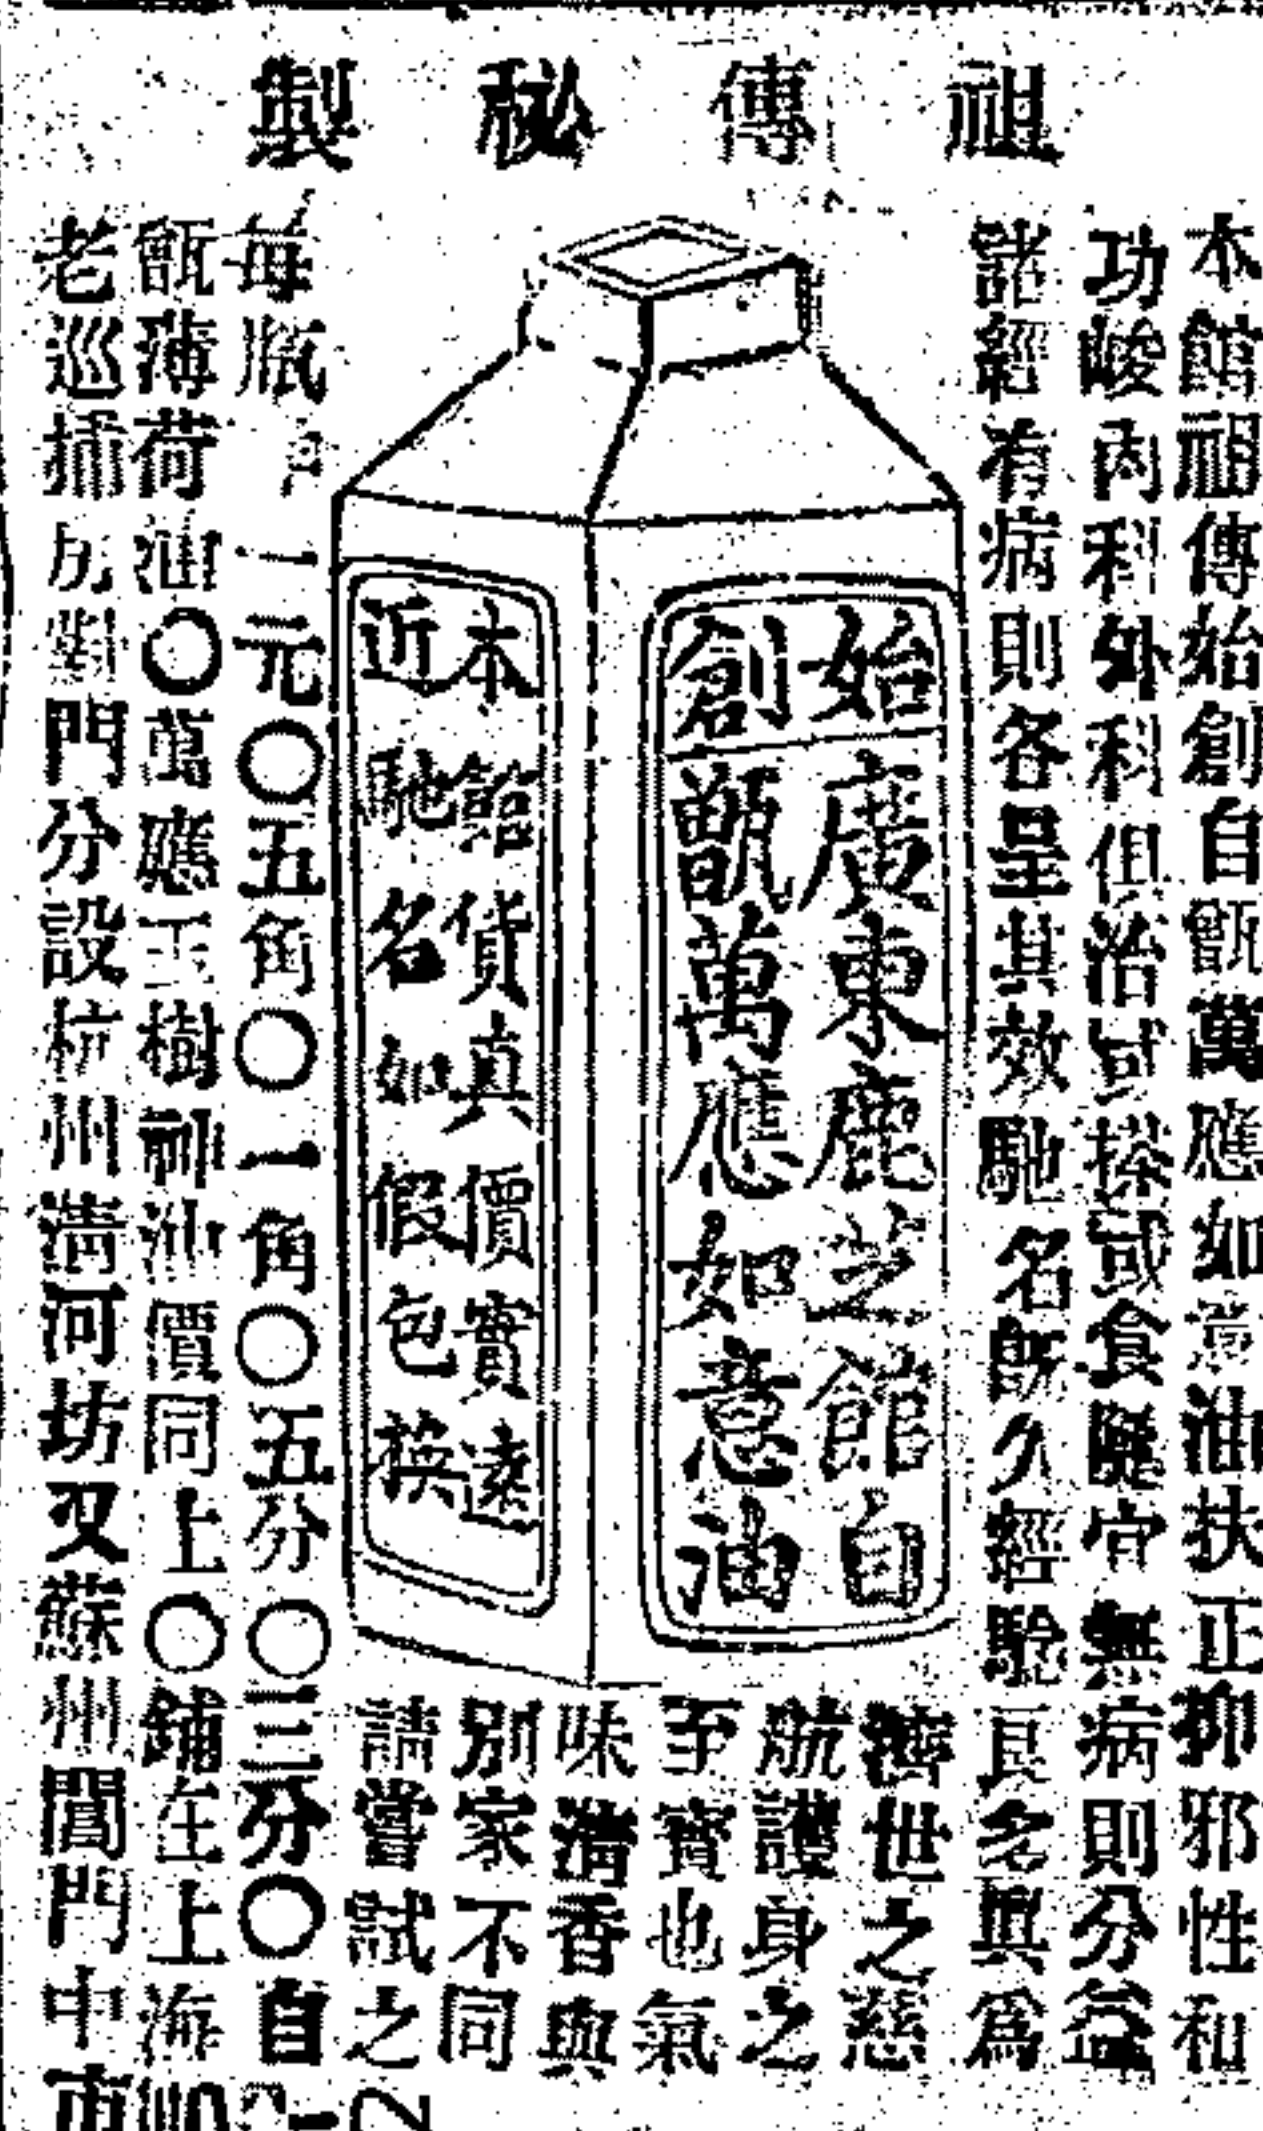 祖傳秘製
本館祖傳始創自甑萬應如意油扶正抑邪性和
功峻內科外科俱治或搽或食壓宜無病則分益
諸經有病則各呈其效馳名既久經驗良多與爲
濟世之慈
航護身之
至寶也氣
味淸香與
別家不同
請嘗試之
始創
廣東鹿芝館自
甑萬應如意油
本舘貨真價實遠
近馳名如假包換
每瓶一元〇五角〇一角〇五分〇三分〇自
甑薄荷油〇萬應玉樹神油價同上〇鋪在上海
老巡捕房對門分設杭州淸河坊又蘇州閶門中市